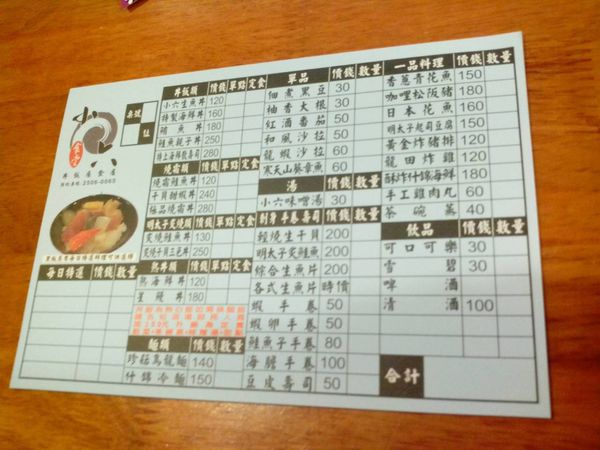 桌號
位
小六
食堂
丼飯居食屋
預約專線:2506-0063
每日特選 價錢 數量
丼飯類 價錢 單點 定食
小六生魚丼 120
特製海鮮丼 160
鮪魚丼 180
鮭魚親子丼 250
特上海鮮散壽司 280
燒霜類 價錢 單點 定食
燒霜鮭魚丼 120
干貝甜蝦丼 240
極品燒霜丼 180
明太子炙燒類 價錢 單點 定食
炙燒鮭魚丼 130
炙燒干貝三色丼 250
熱丼類 價錢 單點 定食
熱海鮮丼 120
星鰻丼 180
麵類 價錢 數量
珍菇烏龍麵 140
什錦冷麵 150
單品 價錢 數量
佃煮黑豆 30
柚香大根 30
紅酒番茄 50
和風沙拉 50
龍蝦沙拉 60
寒天山葵章魚 60
湯 價錢 數量
小六味噌湯 30
刺身 手卷 壽司 價錢 數量
輕燒生干貝 200
明太子炙鮭魚 200
綜合生魚片 200
各式生魚片 時價
蝦手卷 50
蝦卵手卷 50
鮭魚子手卷 80
海膽手卷 100
豆皮壽司 50
一品料理 價錢 數量
香蔥青花魚 150
咖哩松阪豬 180
日本花魚 160
明太子起司豆腐 150
黃金炸豬排 150
龍田炸雞 120
酥炸什錦海鮮 180
手工雞肉丸 60
茶碗蒸 40
飲品 價錢 數量
可口可樂 30
雪碧 30
啤酒
清酒 100
合計